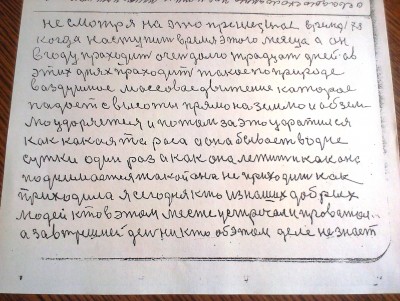 не смотря на это
когда наступит время этого месяца а он
в году проходит очен долго тридцать дней ав
этих днях проходит такое по природе
воздушное массовае двытение каторае
падает с высоты прямо на землю и обзем-
лю ударяется и потом за это ударяится
как какая та раса а она бывает в одне
сутки один раз а как она летит и как она
поднимается такой она не приходит как
приходила я сегодня кто из наших добрых
людей кто в этом месте устречал и провожал..
а завтрешней ден ни кто об этом деле не знает